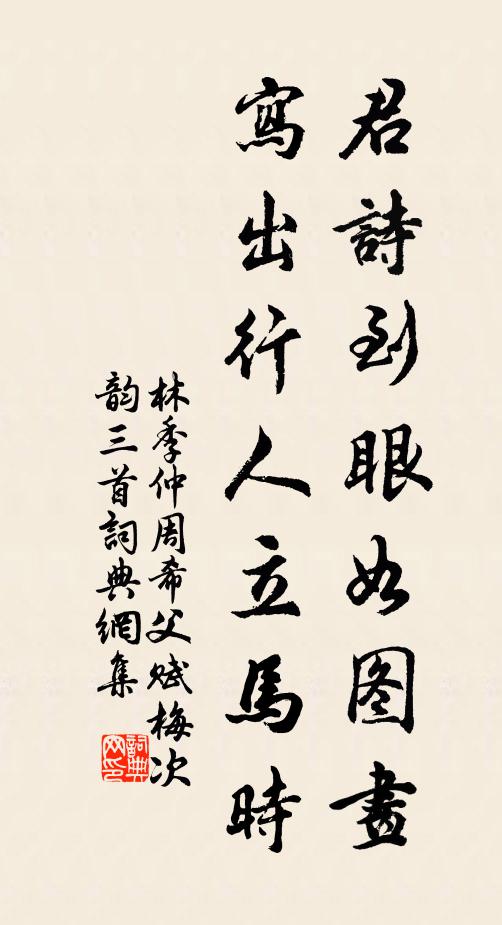 君詩到眼如图畫
寫出行人立馬時
林季仲周希父赋梅次
韵三首詞典網集
詞典
网印